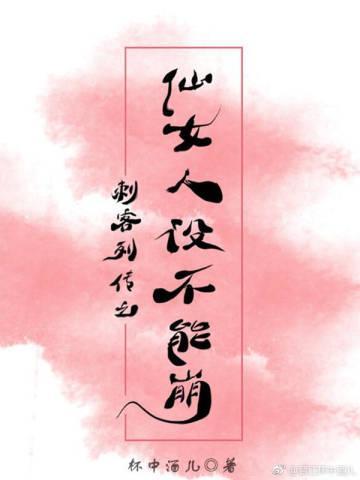 刺客列传之
仙女人设不能崩
杯中酒儿◎著